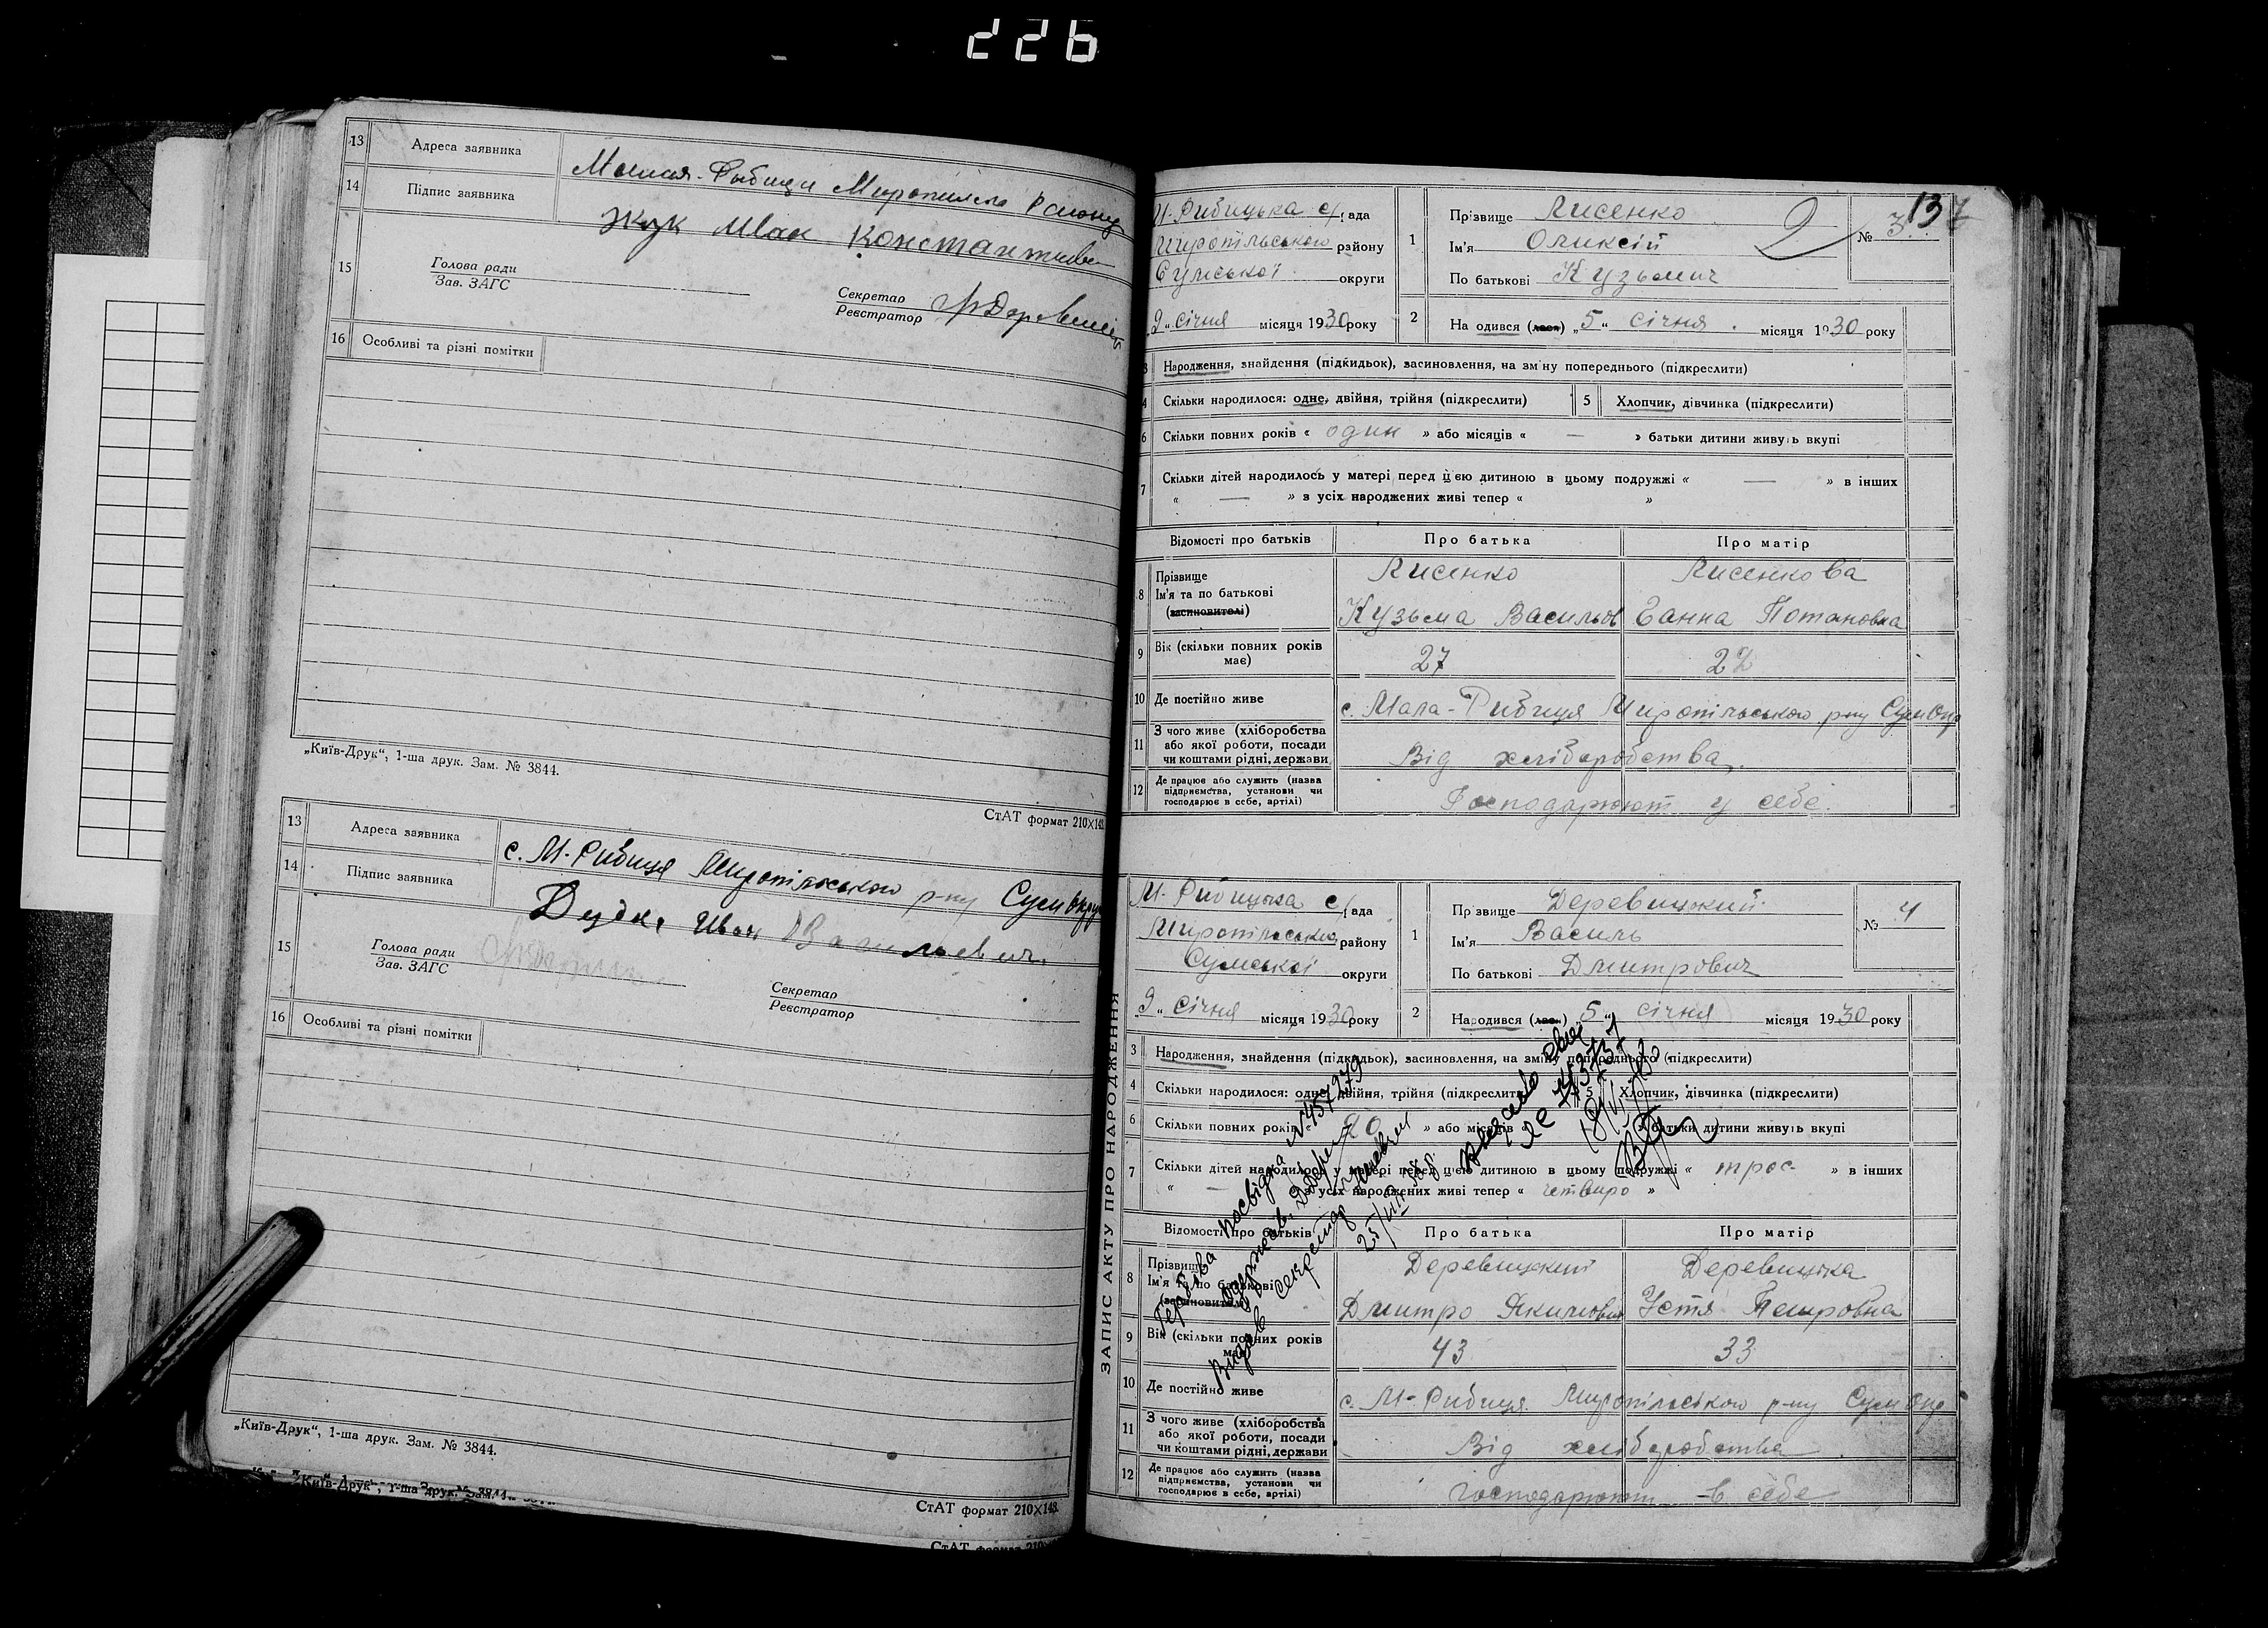 226
13 Адреса заявника Малая-Рыбица Миропільск. Району
14 Підпис заявника Жук Иван Константинов
15 Голова ради
Зав. ЗАГС
Секретар
Реєстратор
16 Особливі та різні помітки
„Київ-Друк“, 1-ша друк. Зам. № 3844.
СтАТ формат 210×148
13 Адреса заявника с. М-Рибиця Миропільського р-ну Сум Округи
14 Підпис заявника Дудка Иван Васильевич
15 Голова ради
Зав. ЗАГС
Секретар
Реєстратор
16 Особливі та різні помітки
„Київ-Друк“, 1-ша друк. Зам. № 3844.
СтАТ формат 210×148
„Київ-Друк“, 1-ша друк. Зам. № 3844
СтАТ формат 210
137
М-Рибицька с/рада
Миропільського району
Сумської округи
„9“ січня місяця 1930 року
1 Прізвище Лисенко
Ім'я Оликсій
По батькові Кузьмич
2
№ 3
2 Народився (лася) „5“ січня місяця 1930 року
3 Народження, знайдення (підкидьок), засиновлення, на зміну попереднього (підкреслити)
4 Скільки народилося: одне, двійня, трійня (підкреслити) 5 Хлопчик, дівчинка (підкреслити)
6 Скільки повних років « один » або місяців « — » батьки дитини живуть вкупі
7 Скільки дітей народилось у матері перед цією дитиною в цьому подружжі « — » в інших
« — » з усіх народжених живі тепер « »
Відомості про батьків Про батька Про матір
8 Прізвище Лисенко Лисенкова
Ім'я та по батькові Кузьма Васильов Ганна Потаповна
(засиновителі)
9 Вік (скільки повних років має) 27 22
10 Де постійно живе с. Мала-Рибиця Миропільського р-ну Сум Окр
11 З чого живе (хліборобства
або якої роботи, посади
чи коштами рідні, держави Від хліборобства
12 Де працює або служить (назва
підприємства, установи чи
господарює в себе, артілі) Господарюют у себе.
ЗАПИС АКТУ ПРО НАРОДЖЕННЯ
М-Рибицька с/рада
Миропільсько району
Сумської округи
„9“ січня місяця 1930 року
1 Прізвище Деревицький
Ім'я Василь
По батькові Дмитрович
№ 4
2 Народився (лася) „5“ січня місяця 1930 року
3 Народження, знайдення (підкидьок), засиновлення, на зміну попереднього (підкреслити)
4 Скільки народилося: одне, двійня, трійня (підкреслити) 5 Хлопчик, дівчинка (підкреслити)
6 Скільки повних років « 20 » або місяців « » батьки дитини живуть вкупі
7 Скільки дітей народилось у матері перед цією дитиною в цьому подружжі « троє » в інших
« — » з усіх народжених живі тепер « четверо »
Відомості про батьків Про батька Про матір
8 Прізвище Деревицький Деревицка
Ім'я та по батькові Дмитро Якимович Устя Петровна
(засиновителі)
9 Вік (скільки повних років має) 43 33
10 Де постійно живе с. М-Рибиця Миропільського р-ну Сум Окр
11 З чого живе (хліборобства
або якої роботи, посади
чи коштами рідні, держави Від хліборобства
12 Де працює або служить (назва
підприємства, установи чи
господарює в себе, артілі) господарюют в себе
Гербова посвідка № 457279
Видав секретар